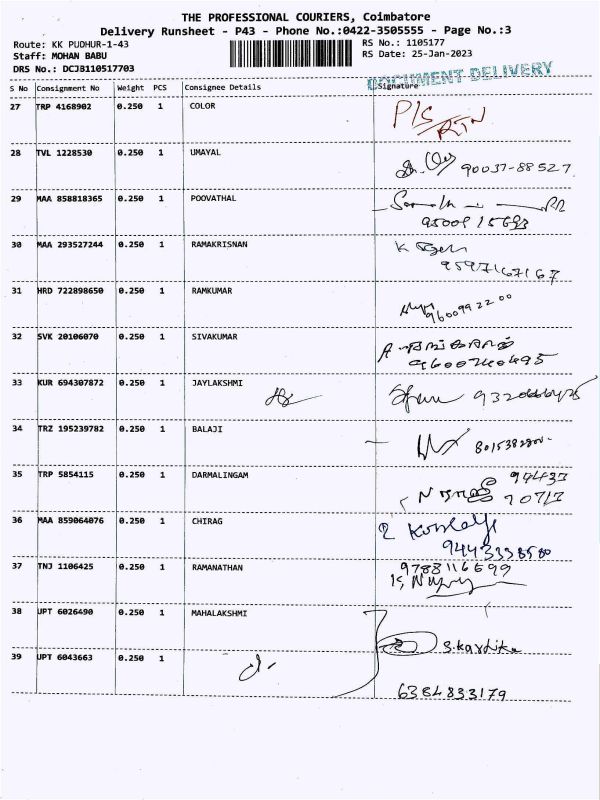 THE PROFESSIONAL COURIERS, Coimbatore
Delivery Runsheet - P43 - Phone No.:0422-3505555 - Page No.:3
Route: KK PUDHUR-1-43 RS No.: 1105177
Staff: MOHAN BABU RS Date: 25-Jan-2023
DRS No.: DCJB110517703
DOCUMENT DELIVERY
S No Consignment No Weight PCS Consignee Details Signature
27 TRP 4168902 0.250 1 COLOR P/S
RTN
28 TVL 1228530 0.250 1 UMAYAL 90037-88527
29 MAA 858818365 0.250 1 POOVATHAL
30 MAA 293527244 0.250 1 RAMAKRISNAN K
9597167167
31 HRD 722898650 0.250 1 RAMKUMAR
9600992200
32 SVK 20106070 0.250 1 SIVAKUMAR
9600740495
33 KUR 694307872 0.250 1 JAYLAKSHMI
34 TRZ 195239782 0.250 1 BALAJI
35 TRP 5854115 0.250 1 DARMALINGAM 94433
70717
36 MAA 859064076 0.250 1 CHIRAG
9443338580
37 TNJ 1106425 0.250 1 RAMANATHAN 9788116699
38 UPT 6026490 0.250 1 MAHALAKSHMI
S.kartika
39 UPT 6043663 0.250 1
6384833179